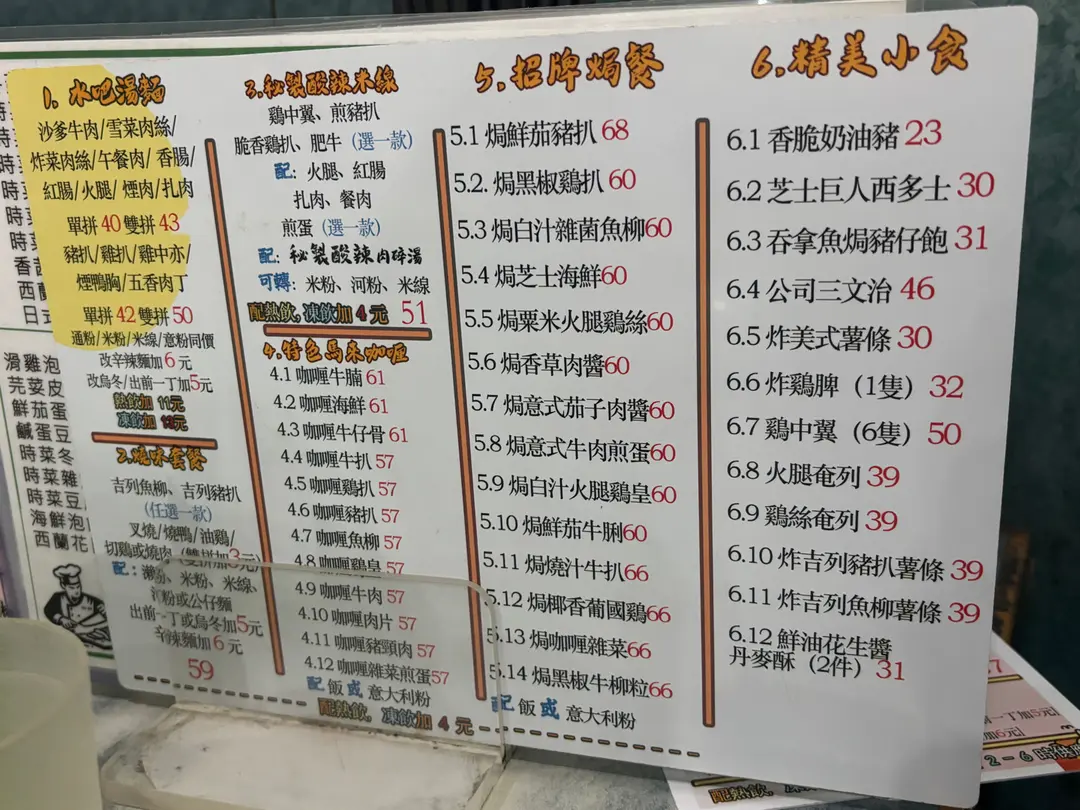 1. 水吧湯麵
沙爹牛肉/雪菜肉絲/
炸菜肉絲/午餐肉/香腸/
紅腸/火腿/煙肉/扎肉
單拼40雙拼43
豬扒/雞扒/雞中亦/
煙鴨胸/五香肉丁
單拼42雙拼50
通粉/米粉/米線/意粉同價
改辛辣麵加6元
改烏冬/出前一丁加5元
熱飲加 11元
凍飲加 13元
2.燒味套餐
吉列魚柳、吉列豬扒
(任選一款)
叉燒/燒鴨/油鷄/
切鷄或燒肉(雙拼加3元)
配:瀨粉、米粉、米線、
河粉或公仔麵
出前一丁或烏冬加5元
辛辣麵加6元
59
3.秘製酸辣米線
鷄中翼、煎豬扒
脆香鷄扒、肥牛(選一款)
配:火腿、紅腸
扎肉、餐肉
煎蛋(選一款)
配:秘製酸辣肉碎湯
可轉:米粉、河粉、米線
配熱飲,凍飲加4元 51
4.特色馬來咖喱
4.1 咖喱牛腩 61
4.2 咖喱海鮮 61
4.3 咖喱牛仔骨 61
4.4 咖喱牛扒 57
4.5 咖喱鷄扒 57
4.6 咖喱豬扒 57
4.7 咖喱魚柳 57
4.8 咖喱鷄皇 57
4.9 咖喱牛肉 57
4.10 咖喱肉片 57
4.11 咖喱豬頸肉 57
4.12 咖喱雜菜煎蛋57
配飯或意大利粉
配熱飲,凍飲加 4 元
5.招牌焗餐
5.1 焗鮮茄豬扒 68
5.2. 焗黑椒鷄扒 60
5.3 焗白汁雜菌魚柳60
5.4 焗芝士海鮮60
5.5 焗粟米火腿鷄絲60
5.6 焗香草肉醬60
5.7 焗意式茄子肉醬60
5.8 焗意式牛肉煎蛋60
5.9 焗白汁火腿鷄皇60
5.10 焗鮮茄牛脷60
5.11 焗燒汁牛扒66
5.12 焗椰香葡國鷄66
5.13 焗咖喱雜菜66
5.14 焗黑椒牛柳粒66
配飯或意大利粉
6.精美小食
6.1 香脆奶油豬 23
6.2 芝士巨人西多士 30
6.3 吞拿魚焗豬仔飽 31
6.4 公司三文治 46
6.5 炸美式薯條 30
6.6 炸鷄脾(1隻)32
6.7 鷄中翼(6隻)50
6.8 火腿奄列 39
6.9 鷄絲奄列 39
6.10 炸吉列豬扒薯條 39
6.11 炸吉列魚柳薯條 39
6.12 鮮油花生醬
丹麥酥(2件)31
滑雞泡
芫荽皮
鮮茄蛋
鹹蛋豆
時菜冬
時菜雜
時菜豆
海鮮泡
西蘭花
前一丁加5元
加6元
2-6時